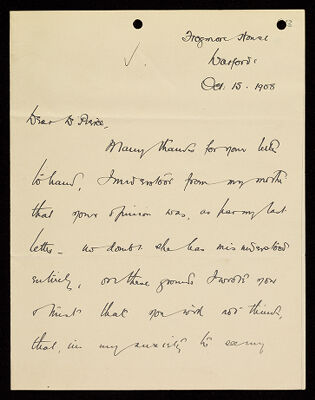 Frogmore House
Watford
Oct. 15. 1908
Dear Dr Pierce,
Many thanks for your letter
to hand, I understood from my mother
that your opinion was, as per my last
letter - no doubt she has misunderstood
entirely, on these grounds I wrote you
& trust that you will not think,
that, in my anxiety to